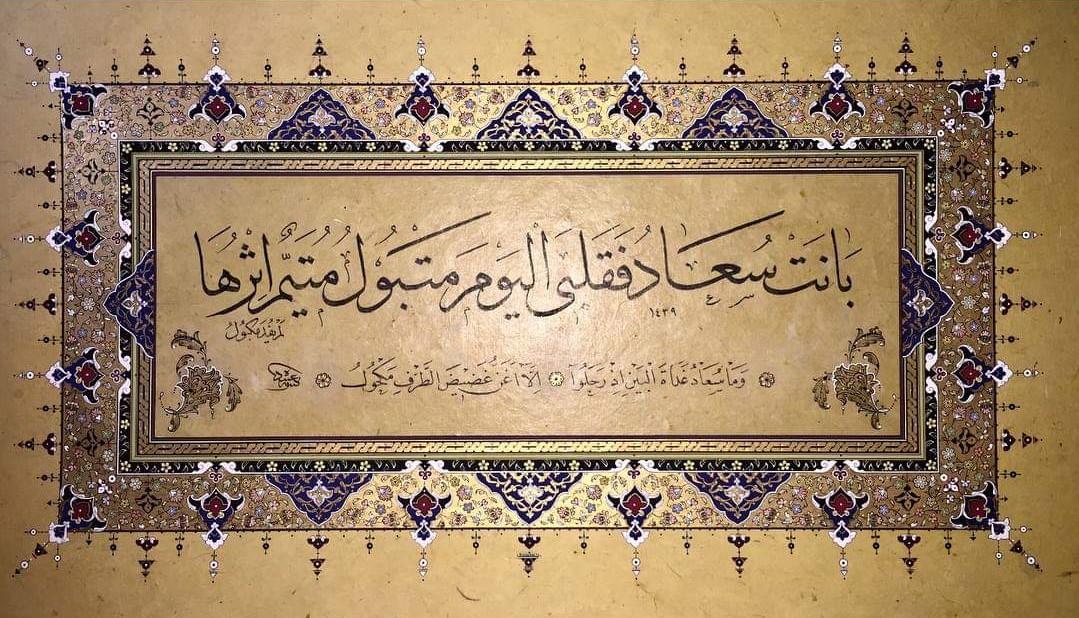 بَانَت سُعَادُ فَقَلبِى اليَومَ مَتبُولُ مُتَيَّمٌ اِثرَهَا
لَم يُفدَ مَكبُولُ
١٤٣٩
وَمَا سُعَادُ غَدَاةَ البَينِ اِذ رَحَلُوا اِلَّا اَغَنُّ غَضِيضُ الطَّرفِ مَكحُولُ